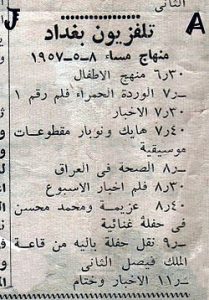 الثانى
J
A
تلفزيون بغداد
منهاج مساء ٨-٥-١٩٥٧
٦ر٣٠ منهج الاطفال
٧ر- الوردة الحمراء فلم رقم ١
٧ر٣٠ الاخبار
٧ر٤٠ هايك ونوبار مقطوعات
موسيقية
٨ر- الصحة فى العراق
٨ر٣٠ فلم اخبار الاسبوع
٨ر٤٠ عزيمة ومحمد محسن
فى حفلة غنائية
٩ر- نقل حفلة باليه من قاعة
الملك فيصل الثانى
١١ر- الاخبار وختام